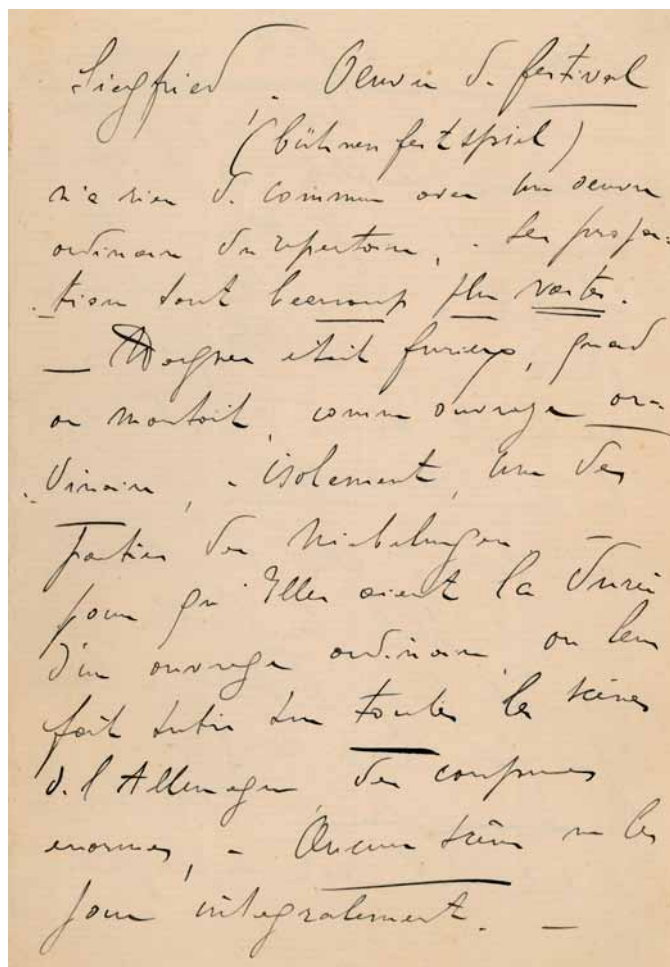 Siegfried, - Oeuvre de festival
(bühnenfestspiel)
n'a rien de commun avec une oeuvre
ordinaire du répertoire, - les propor-
-tions sont beaucoup plus vastes.
— Wagner était furieux, quand
on montait, comme ouvrage or-
-dinaire, - isolement, une des
parties des Niebelungen —
pour qu'Elles aient la durée
d'un ouvrage ordinaire, on leur
fait subir sur toutes les scènes
de l'Allemagne des coupures
enormes, - Aucune scène ne les
joue intégralement. —